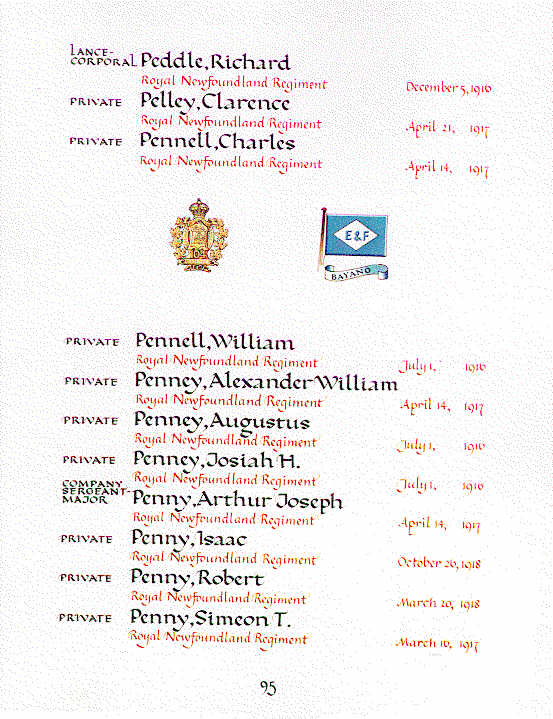 LANCE-
CORPORAL Peddle, Richard
Royal Newfoundland Regiment December 5, 1916
PRIVATE Pelley, Clarence
Royal Newfoundland Regiment April 21, 1917
PRIVATE Pennell, Charles
Royal Newfoundland Regiment April 14, 1917
E&F
BAYANO
PRIVATE Pennell, William
Royal Newfoundland Regiment July 1, 1916
PRIVATE Penney, Alexander William
Royal Newfoundland Regiment April 14, 1917
PRIVATE Penney, Augustus
Royal Newfoundland Regiment July 1, 1916
PRIVATE Penney, Josiah H.
Royal Newfoundland Regiment July 1, 1916
COMPANY
SERGEANT-
MAJOR Penny, Arthur Joseph
Royal Newfoundland Regiment April 14, 1917
PRIVATE Penny, Isaac
Royal Newfoundland Regiment October 20, 1918
PRIVATE Penny, Robert
Royal Newfoundland Regiment March 20, 1918
PRIVATE Penny, Simeon T.
Royal Newfoundland Regiment March 10, 1917
95